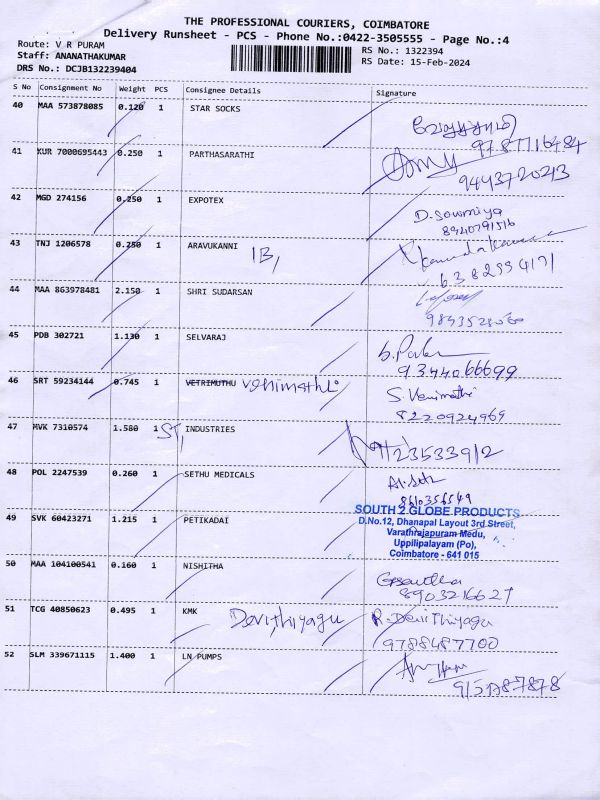 THE PROFESSIONAL COURIERS, COIMBATORE
Delivery Runsheet - PCS - Phone No.:0422-3505555 - Page No.:4
Route: V R PURAM
Staff: ANANATHAKUMAR
DRS No.: DCJB132239404
RS No.: 1322394
RS Date: 15-Feb-2024
S No Consignment No Weight PCS Consignee Details Signature
40 MAA 573878085 0.120 1 STAR SOCKS
41 KUR 7000695443 0.250 1 PARTHASARATHI
9443720213
42 MGD 274156 0.250 1 EXPOTEX
D. Sowmiya
8940791516
43 TNJ 1206578 0.250 1 ARAVUKANNI
44 MAA 863978481 2.150 1 SHRI SUDARSAN
45 PDB 302721 1.130 1 SELVARAJ
9344066699
46 SRT 59234144 0.745 1 VETRIMUTHU
8220924969
47 MVK 7310574 1.580 1 INDUSTRIES
48 POL 2247539 0.260 1 SETHU MEDICALS
8610356549
49 SVK 60423271 1.215 1 PETIKADAI
SOUTH 2 GLOBE PRODUCTS
D.No.12, Dhanapal Layout 3rd Street,
Varathrajapuram Medu,
Uppilipalayam (Po),
Coimbatore - 641 015
50 MAA 104100541 0.160 1 NISHITHA
8903216627
51 TCG 40850623 0.495 1 KMK Devithiyagu R. DeviThiyagu
9788487700
52 SLM 339671115 1.400 1 LN PUMPS